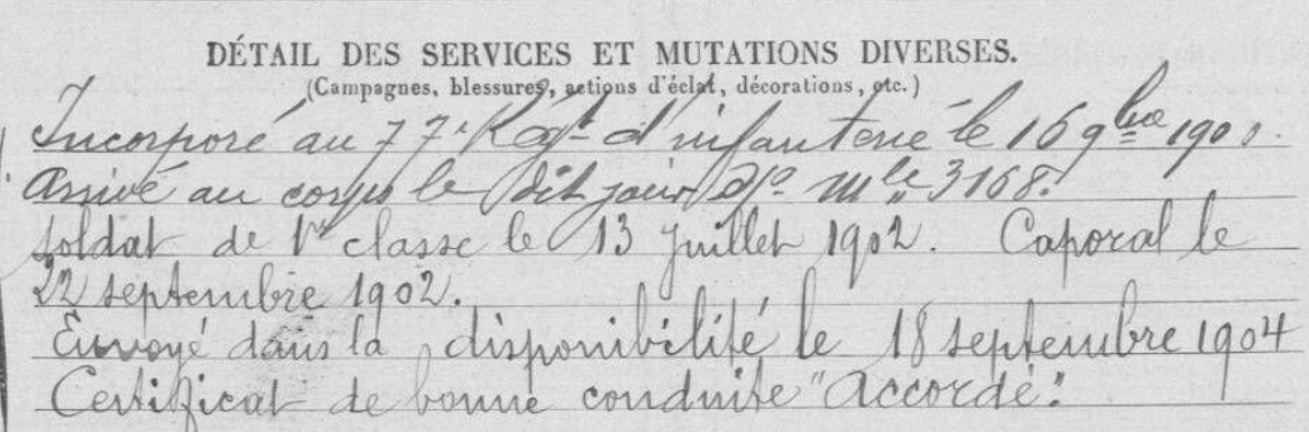 DÉTAIL DES SERVICES ET MUTATIONS DIVERSES.
(Campagnes, blessures, actions d'éclat, décorations, etc.)
Incorporé au 77e Régt d'infanterie le 16 9bre 1901.
Arrivé au corps le dit jour, Mle 3168.
soldat de 1re classe le 13 juillet 1902. Caporal le
22 septembre 1902.
Envoyé dans la disponibilité le 18 septembre 1904
Certificat de bonne conduite "Accordé".